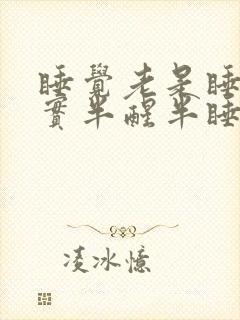 睡覺老是睡
實半醒半睡
凌冰憶